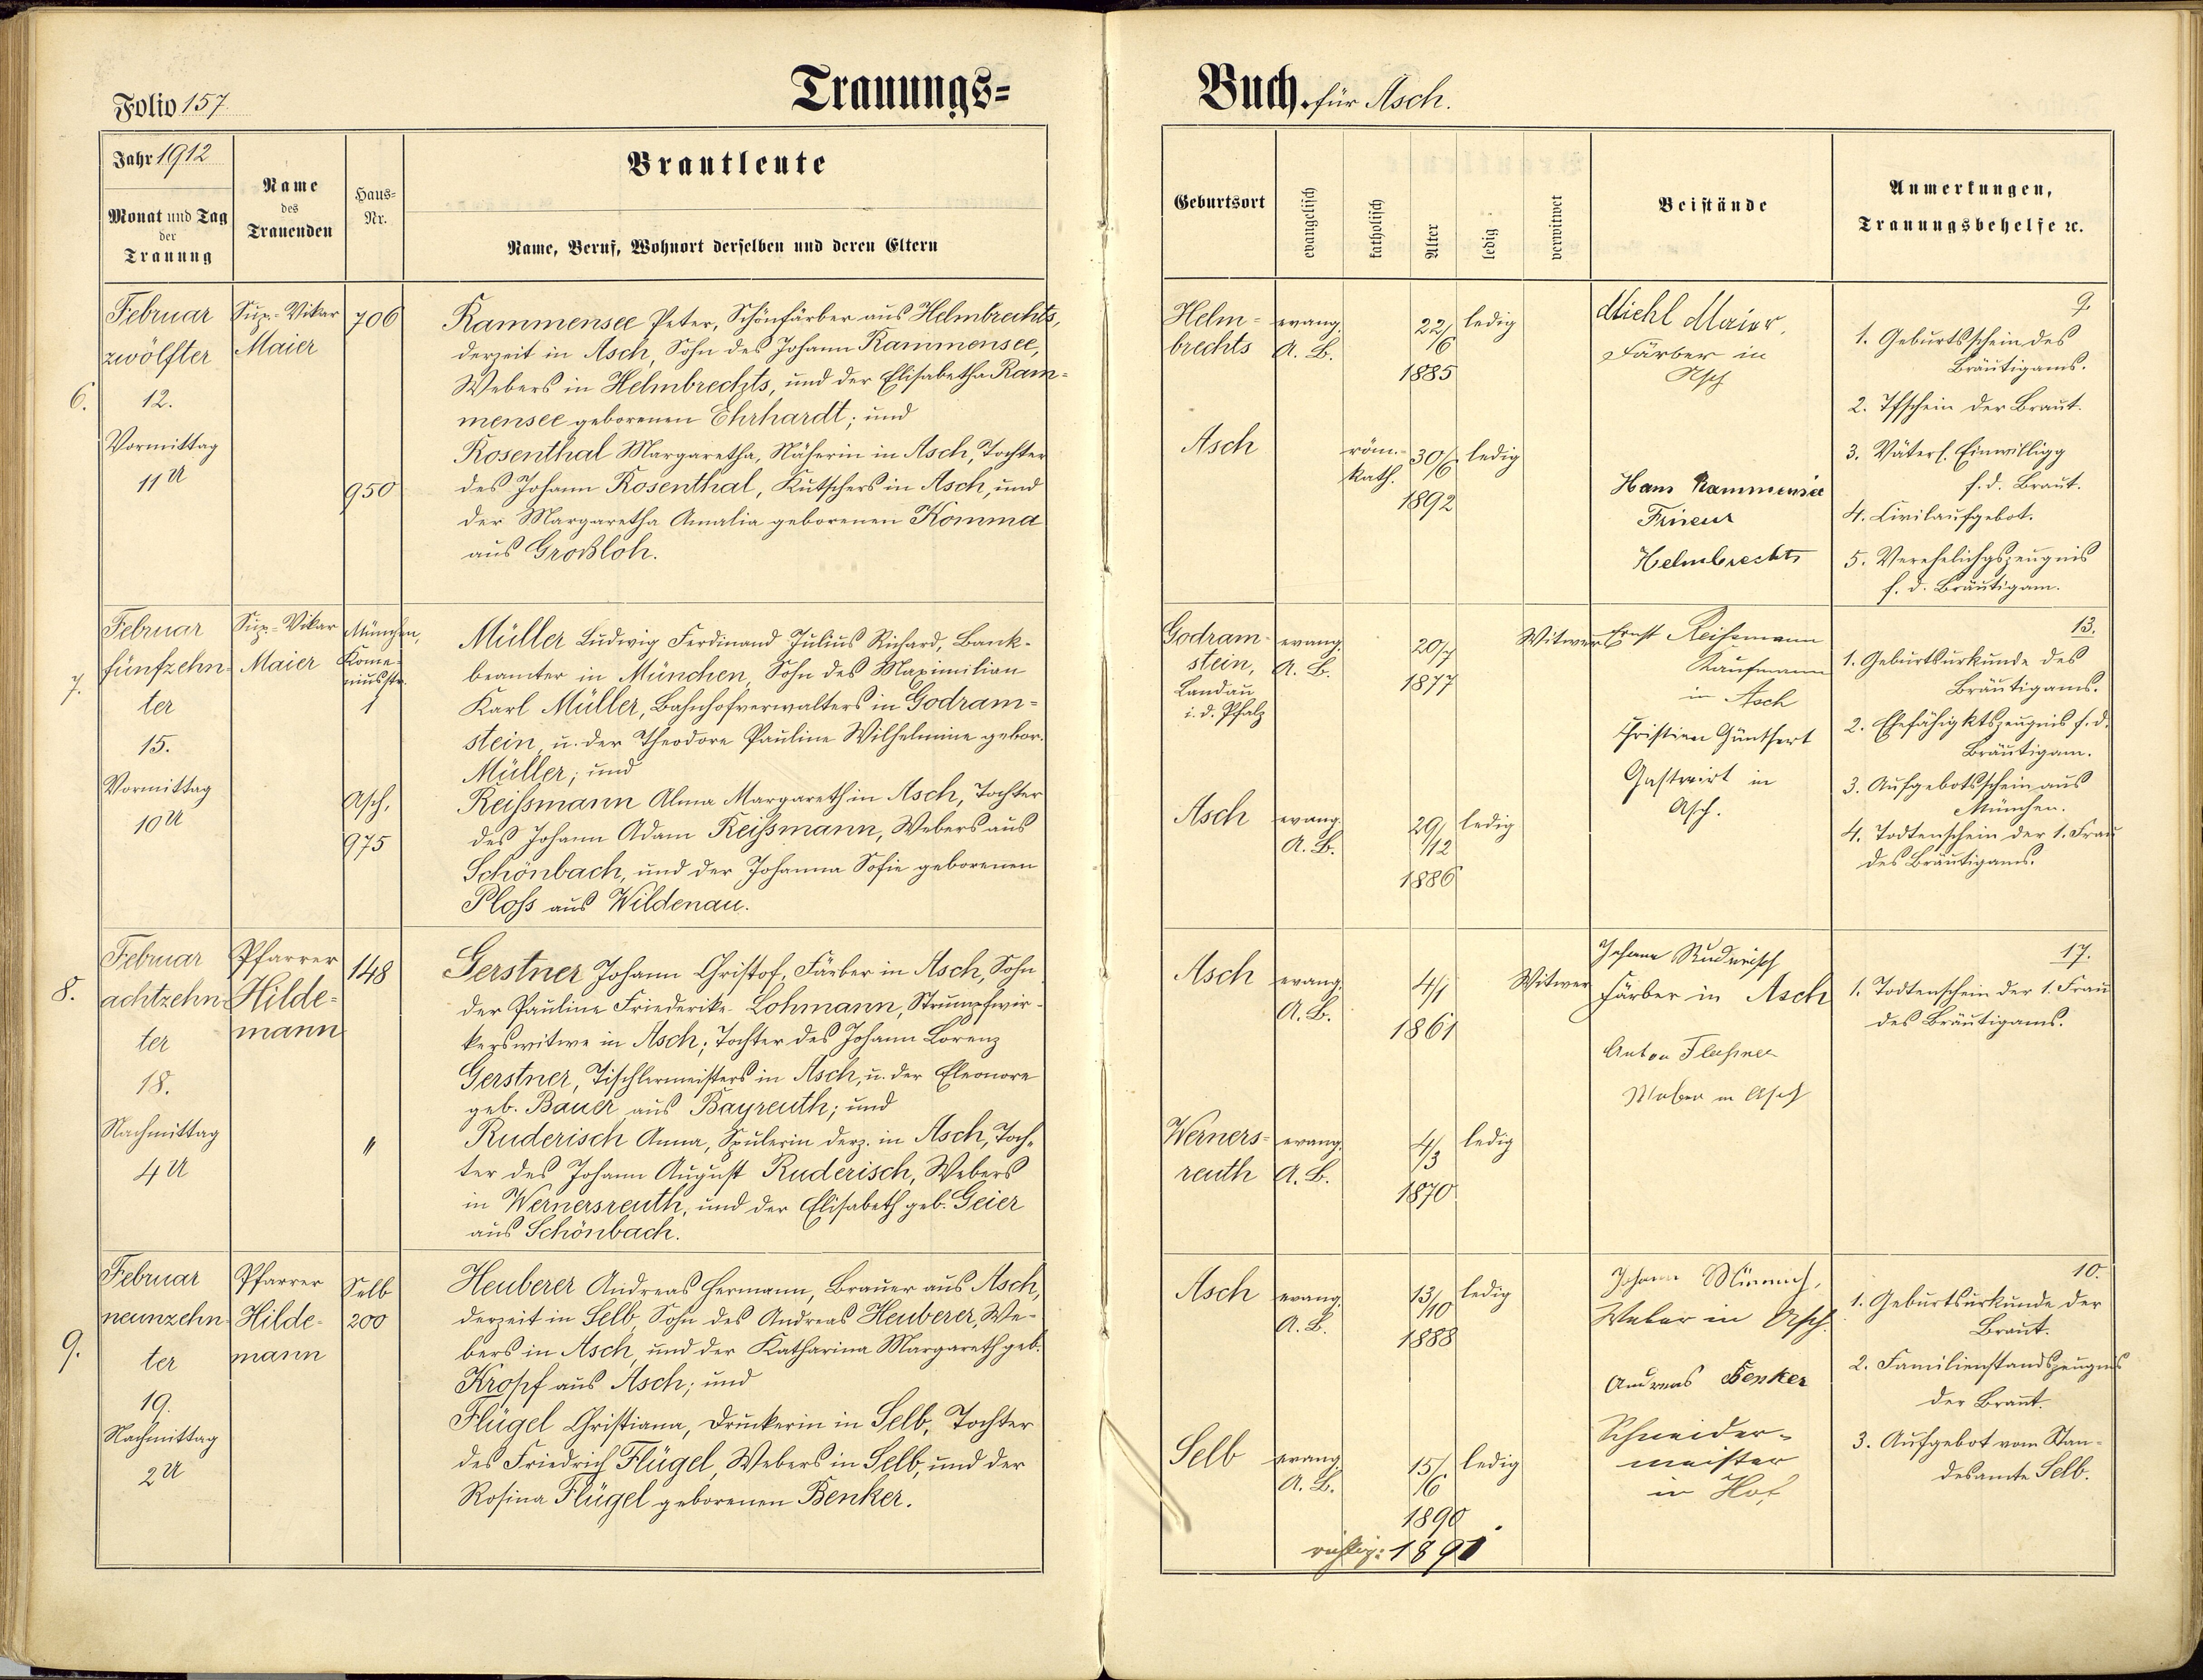 Folio 157.
Trauungs=
Buch. für Asch.
Jahr 1912
Monat und Tag
der
Trauung
Name
des
Trauenden
Haus=
Nr.
Brautleute
Name, Beruf, Wohnort derselben und deren Eltern
Geburtsort
evangelisch
katholisch
Alter
ledig
verwitwet
Beistände
Anmerkungen,
Trauungsbehelfe ec.
6.
Februar
zwölfter
12.
Vormittag
11 U
Sup.-Vikar
Maier
706
950
Rammensee Peter, Schönfärber aus Helmbrechts,
derzeit in Asch, Sohn des Johann Rammensee,
Webers in Helmbrechts, und der Elisabetha Ram=
mensee geborenen Ehrhardt; und
Rosenthal Margaretha, Näherin in Asch, Tochter
des Johann Rosenthal, Kutschers in Asch, und
der Margaretha Amalia geborenen Komma
aus Großloh.
Helm=
brechts
evang.
A. B.
22/6
1885
ledig
Asch
röm.-
kath.
30/6
1892
ledig
Michl Maier.
Färber in
Asch
Hans Rammensee
Friseur
Helmbrechts
9.
1. Geburtsschein des
Bräutigams.
2. Tfschein der Braut.
3. Väterl. Einwilligg
f. d. Braut.
4. Civilaufgebot.
5. Verehelichgszeugnis
f. d. Bräutigam.
7.
Februar
fünfzehn=
ter
15.
Vormittag
10 U
Sup.-Vikar
Maier
München,
Kome=
niusstr.
1
Asch,
975
Müller Ludwig Ferdinand Julius Richard, Bank-
beamter in München, Sohn des Maximilian
Karl Müller, Bahnhofverwalters in Godram=
stein, u. der Theodore Pauline Wilhelmine gebor.
Müller; und
Reißmann Alma Margareth in Asch, Tochter
des Johann Adam Reißmann, Webers aus
Schönbach, und der Johanna Sofie geborenen
Ploß aus Wildenau.
Godram=
stein,
Landau
i. d. Pfalz
evang.
A. B.
20/7
1877
Witwer
Asch
evang.
A. B.
29/12
1886
ledig
Ernst Reißmann
Kaufmann
in Asch
Christian Günthert
Gastwirt in
Asch.
13.
1. Geburtsurkunde des
Bräutigams.
2. Ehefähigktszeugnis f. d.
Bräutigam.
3. Aufgebotsschein aus
München.
4. Todtenschein der 1. Frau
des Bräutigams.
8.
Februar
achtzehn=
ter
18.
Nachmittag
4 U
Pfarrer
Hilde=
mann
148
"
Gerstner Johann Christof, Färber in Asch, Sohn
der Pauline Friederike Lohmann, Strumpfwir-
kerswitwe in Asch; Tochter des Johann Lorenz
Gerstner, Tischlermeisters in Asch, u. der Eleonore
geb. Bauer aus Bayreuth; und
Ruderisch Anna, Spulerin derz. in Asch, Toch-
ter des Johann August Ruderisch, Webers
in Wernersreuth, und der Elisabeth geb. Geier
aus Schönbach.
Asch
evang.
A. B.
4/1
1861
Witwer
Werners=
reuth
evang.
A. B.
4/3
1870
ledig
Johann Ruderisch
Färber in Asch
Anton
Weber in Asch
17.
1. Todtenschein der 1. Frau
des Bräutigams.
9.
Februar
neunzehn=
ter
19.
Nachmittag
2 U
Pfarrer
Hilde=
mann
Selb
200
Heuberer Andreas Hermann, Brauer aus Asch,
derzeit in Selb, Sohn des Andreas Heuberer, We-
bers in Asch, und der Katharina Margareth geb.
Kropf aus Asch; und
Flügel Christiana, Druckerin in Selb, Tochter
des Friedrich Flügel, Webers in Selb, und der
Rosina Flügel geborenen Benker.
Asch
evang.
A. B.
13/10
1888
ledig
Selb
evang.
A. B.
15/6
1890
richtig: 1891
ledig
Johann
Weber in Asch.
Andreas Benker
Schneider-
meister
in Hof
10.
1. Geburtsurkunde der
Braut.
2. Familienstandszeugnis
der Braut.
3. Aufgebot vom Stan-
desamte Selb.